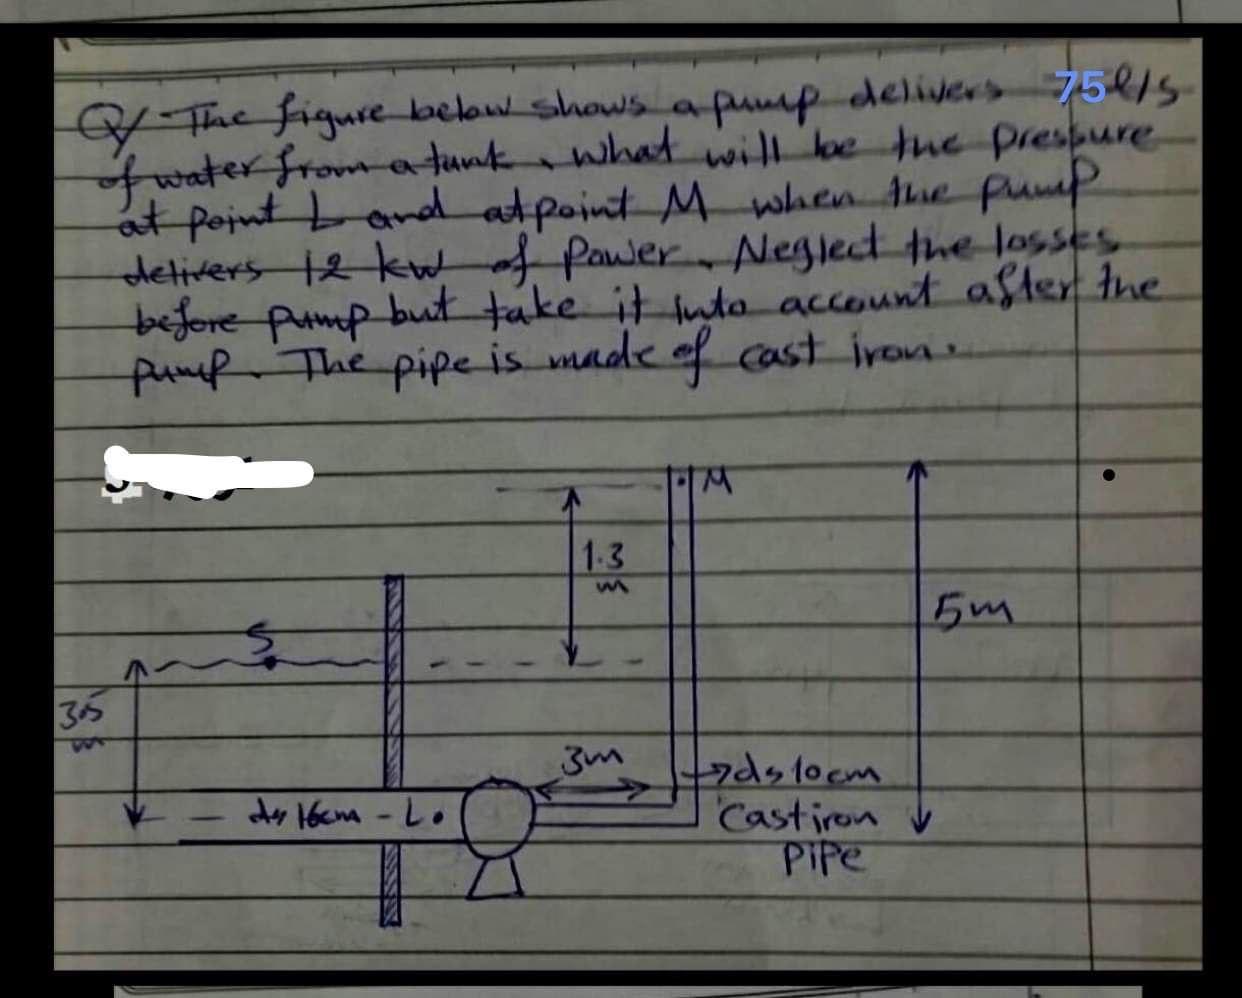 Q/ The figure below shows a pump delivers 75 l/s
of water from a tank. What will be the pressure
at point L and at point M when the pump
delivers 12 kw of power. Neglect the losses
before pump but take it into account after the
pump. The pipe is made of cast iron.
M
1.3
m
5m
S
3.5
m
3m
d=10cm
d=16cm - L
Cast iron
pipe